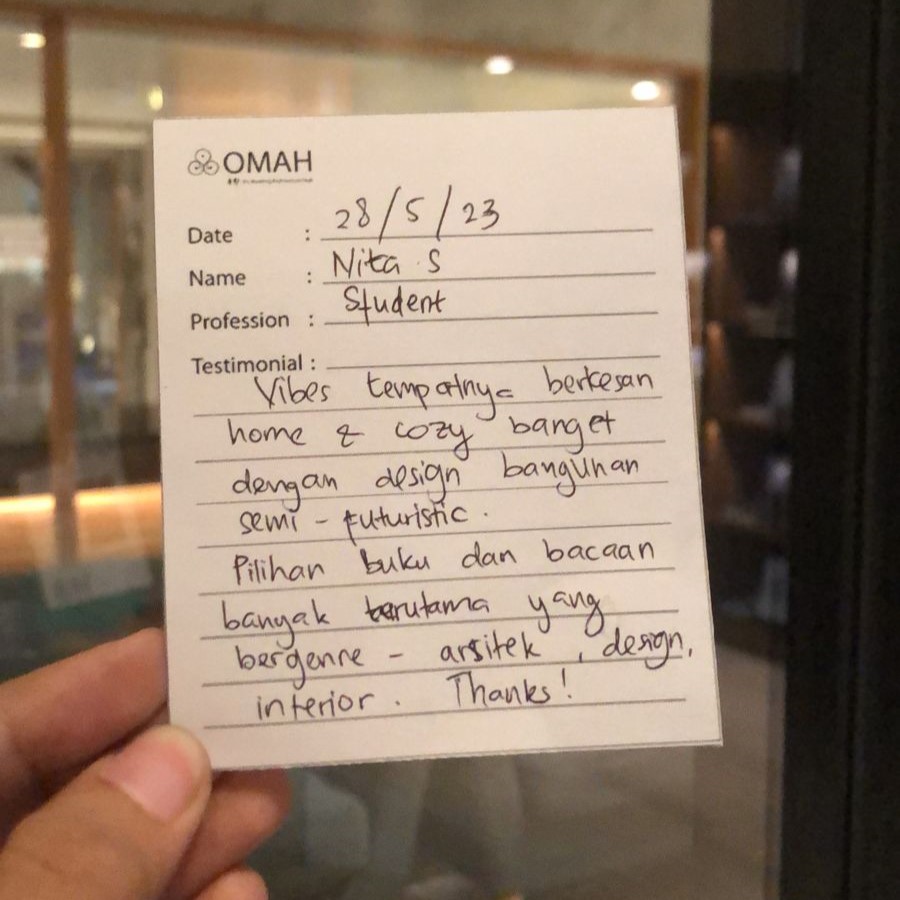 OMAH
Date : 28/5/23
Name : Nita S
Profession : Student
Testimonial :
Vibes tempatnya berkesan
home & cozy banget
dengan design bangunan
semi - futuristic.
Pilihan buku dan bacaan
banyak terutama yang
bergenre - arsitek, design,
interior. Thanks!